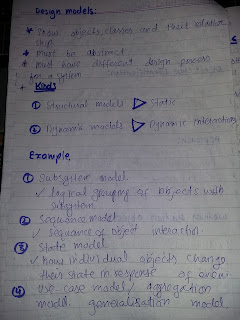 Design models:
* Show objects, classes and their relation
ship
* Must be abstract
* must have different design process
for a system
* Kinds
① Structural models ▷ Static
② Dynamic models ▷ Dynamic interactions
Example
① Subsystem model
✓ logical grouping of objects with
subsystem
② Sequence model
✓ sequence of object interaction
③ State model
✓ how individual objects change
their state in response of event
④ use-case model / aggregation
model generalisation model